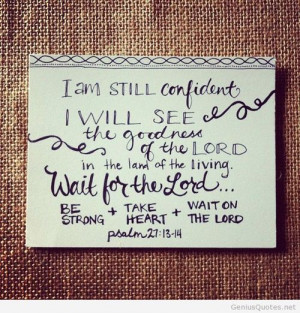 I am STILL confident,
I WILL SEE
the goodness
of the LORD
in the land of the living.
Wait for the Lord...
BE STRONG + TAKE HEART + WAIT ON THE LORD
psalm 27:13-14
GeniusQuotes.net